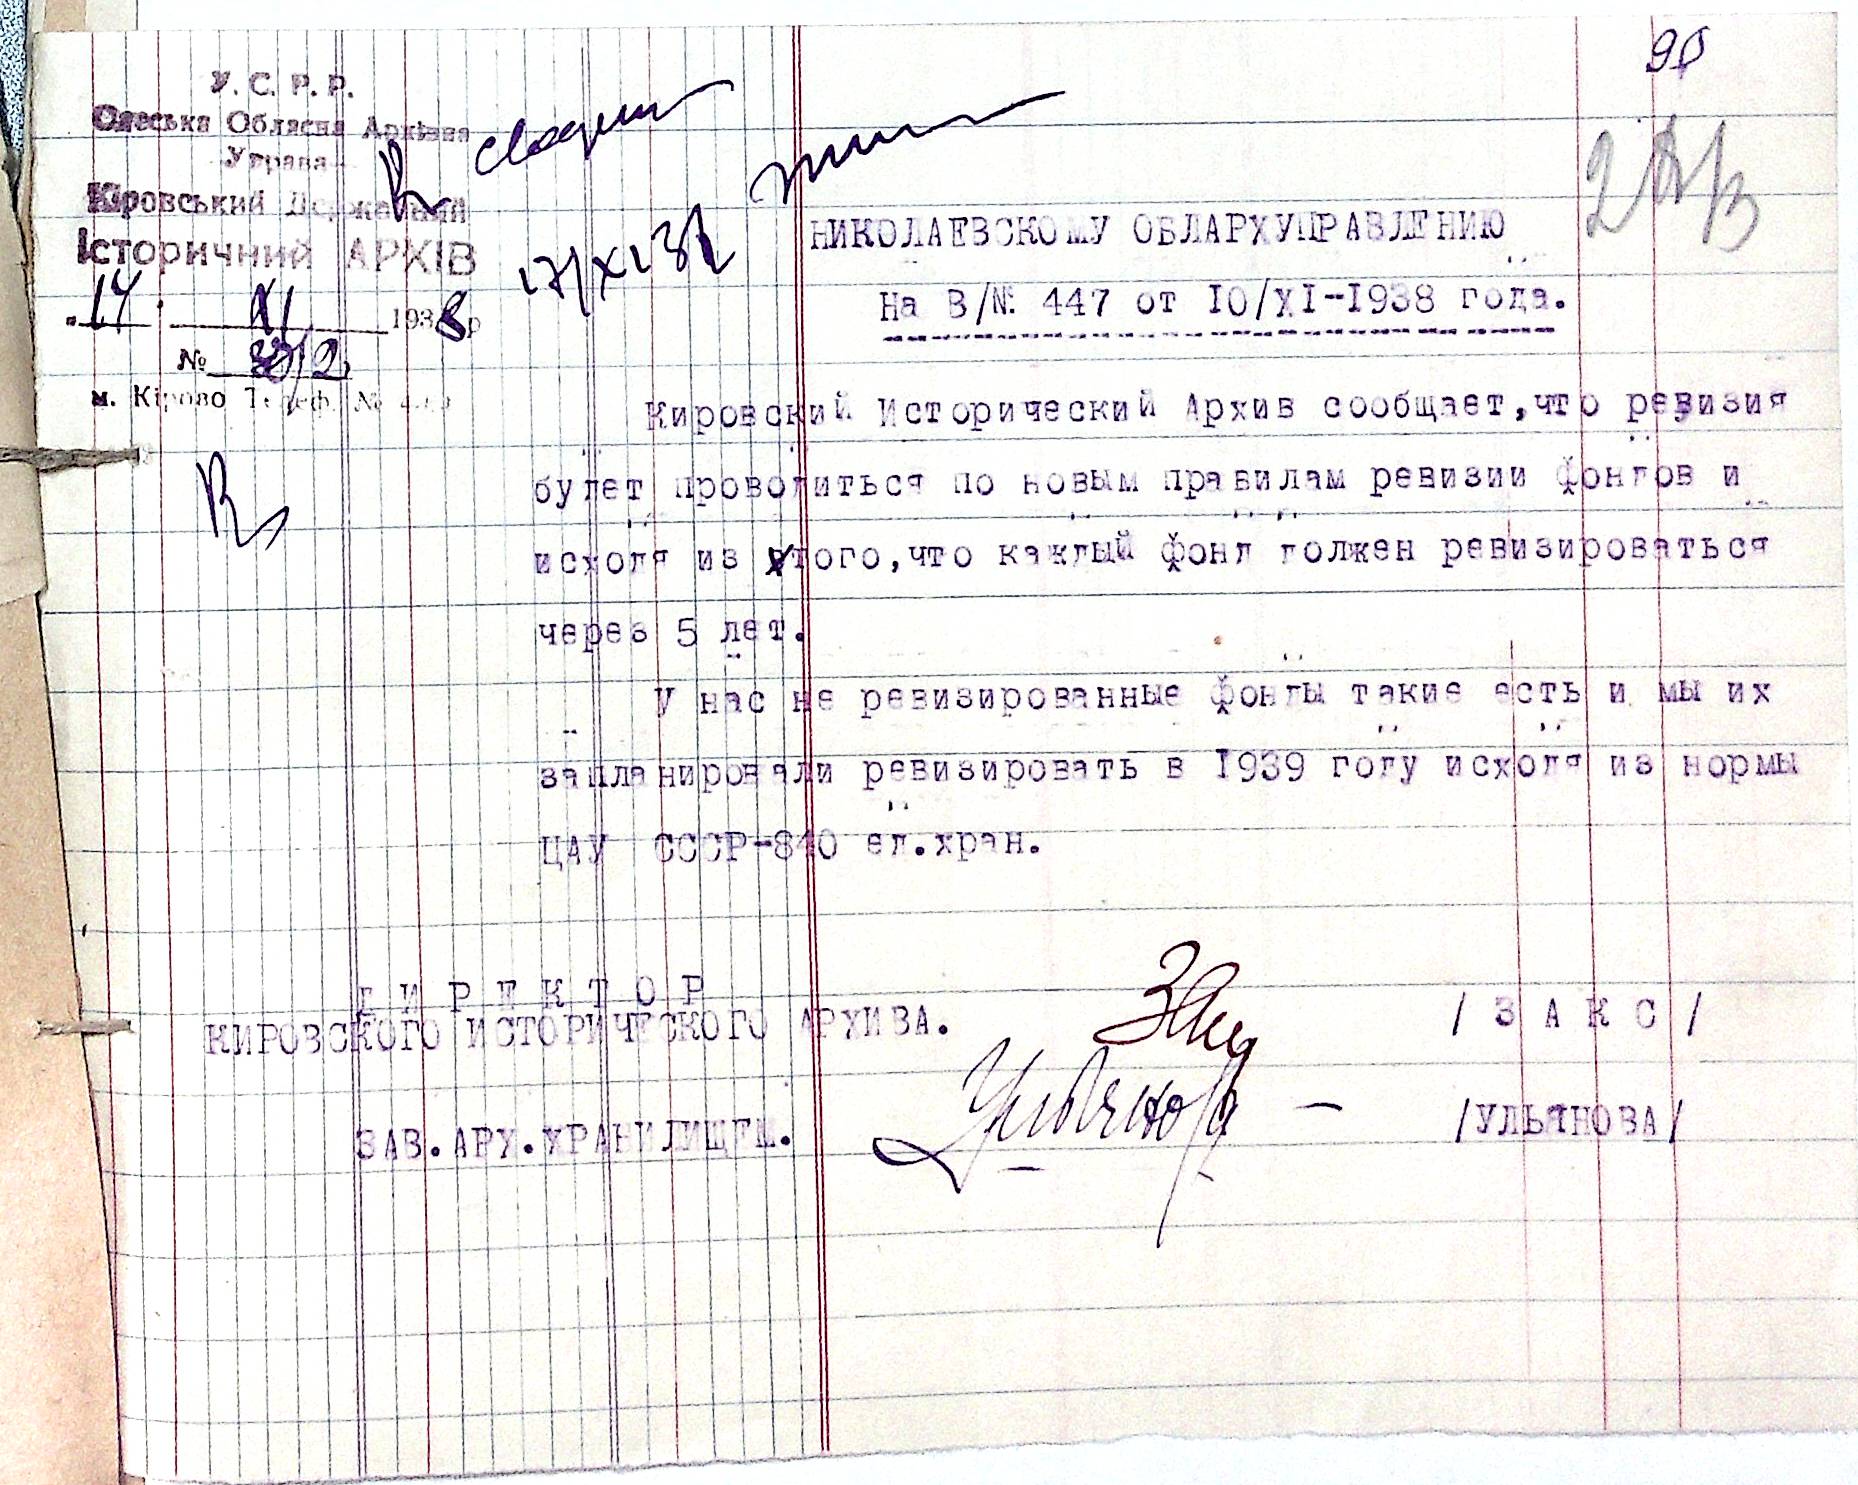 90
У. С. Р. Р.
Одеська Обласна Архівна
Управа
Кіровський Державний
Історичний АРХІВ
14. XI 1938 р
№
м. Кірово Телеф. №
17/XI 38
НИКОЛАЕВСКОМУ ОБЛАРХУПРАВЛЕНИЮ
На В/№ 447 от 10/XI-1938 года.
Кировский Исторический Архив сообщает,что ревизия
будет проводиться по новым правилам ревизии фондов и
исходя из того,что каждый фонд должен ревизироваться
через 5 лет.
У нас не ревизированные фонды такие есть и мы их
запланировали ревизировать в 1939 году исходя из нормы
ЦАУ СССР-840 ед.хран.
Д И Р Е К Т О Р
КИРОВСКОГО ИСТОРИЧЕСКОГО АРХИВА.
/ З А К С /
ЗАВ.АРХ.ХРАНИЛИЩЕМ.
Ульянова
/УЛЬЯНОВА/